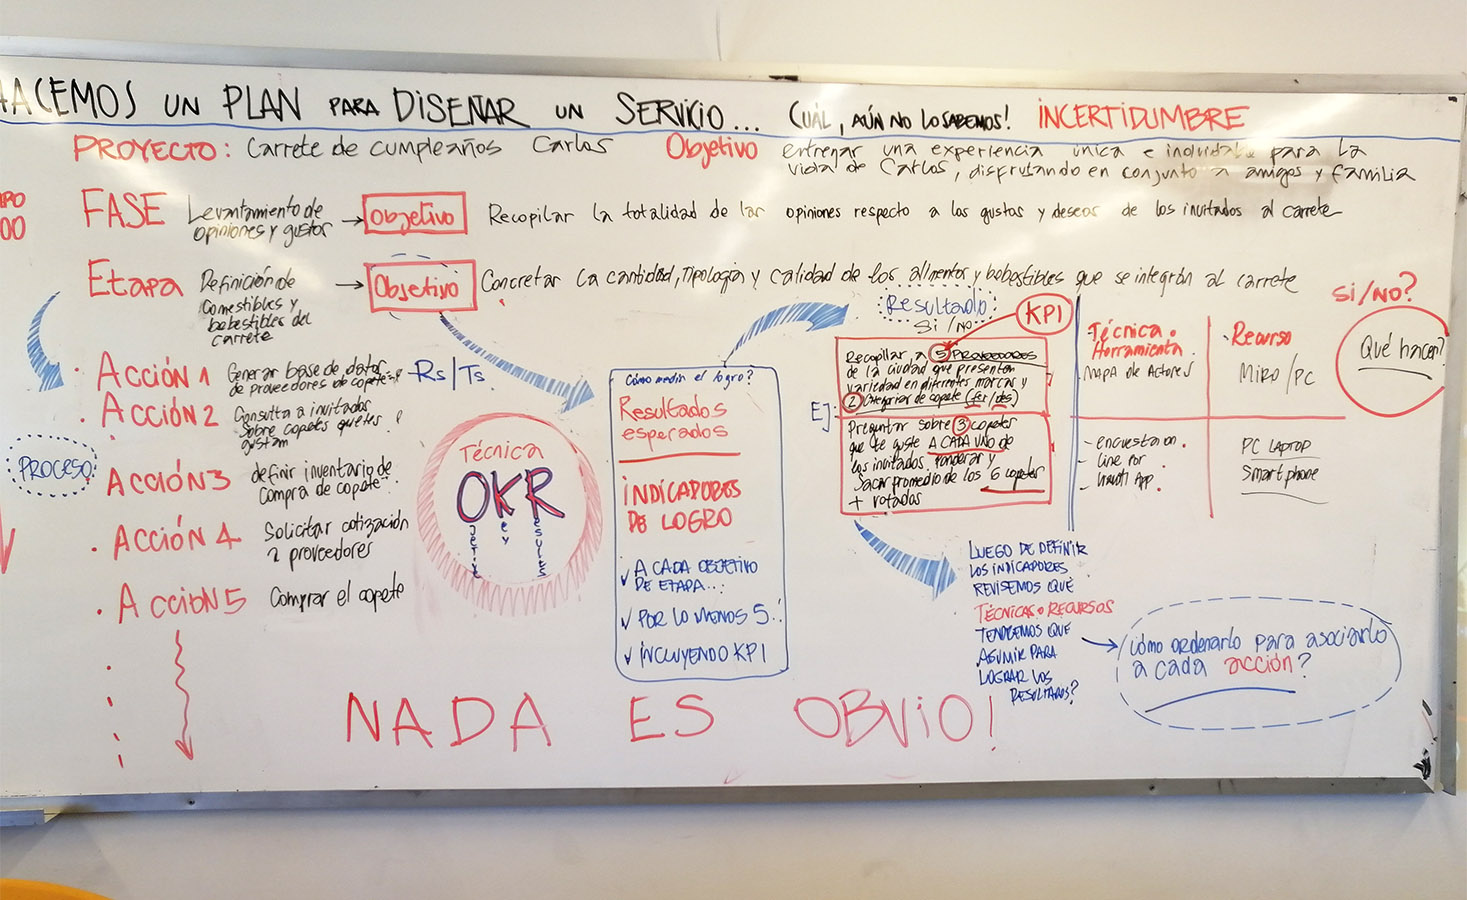 HACEMOS UN PLAN PARA DISEÑAR UN SERVICIO... CUÁL, AÚN NO LO SABEMOS! INCERTIDUMBRE
PROYECTO: Carrete de cumpleaños Carlos
Objetivo entregar una experiencia única e inolvidable para la
vida de Carlos, disfrutando en conjunto a amigos y familia
00
FASE Levantamiento de
opiniones y gustos
→ Objetivo Recopilar la totalidad de las opiniones respecto a los gustos y deseos de los invitados al carrete
Etapa Definición de
Comestibles y
bebestibles del
carrete
→ Objetivo Concretar la cantidad, tipología y calidad de los alimentos y bebestibles que se integrán al carrete
PROCESO
· ACCIÓN 1 Generar base de datos
de proveedores de copete
Rs/Ts
· ACCIÓN 2 Consulta a invitados
sobre copetes que les
gustan
· ACCIÓN 3 definir inventario de
Compra de copete
· ACCIÓN 4 Solicitar cotización
a proveedores
· ACCIÓN 5 Comprar el copete
Técnica
OKR
ey
esults
Cómo medir el logro?
Resultados
esperados
INDICADORES
DE LOGRO
✓ A CADA OBJETIVO
DE ETAPA...
✓ POR LO MENOS 5
✓ INCLUYENDO KPI
Resultado
Si/No
KPI
EJ:
Recopilar, a 5 PROVEEDORES
de la ciudad que presentan
variedad en diferentes marcas y
2 categorías de copete (fer/des)
Preguntar sobre 3 copetes
que te guste A CADA UNO de
los invitados. Ponderar y
Sacar promedio de los 6 copetes
+ votados
·Técnica o
Herramienta
MAPA DE ACTORES
· Recurso
MIRO/PC
- encuesta on
- line por
- WhatsApp.
PC LAPTOP
Smartphone
SI/NO?
Qué hacer?
LUEGO DE DEFINIR
LOS INDICADORES
REVISEMOS QUÉ
TÉCNICAS o RECURSOS
TENDREMOS QUE
ASUMIR PARA
LOGRAR LOS
RESULTADOS?
¿Cómo ordenarlo para asociarlo
a cada acción?
NADA ES OBVIO!